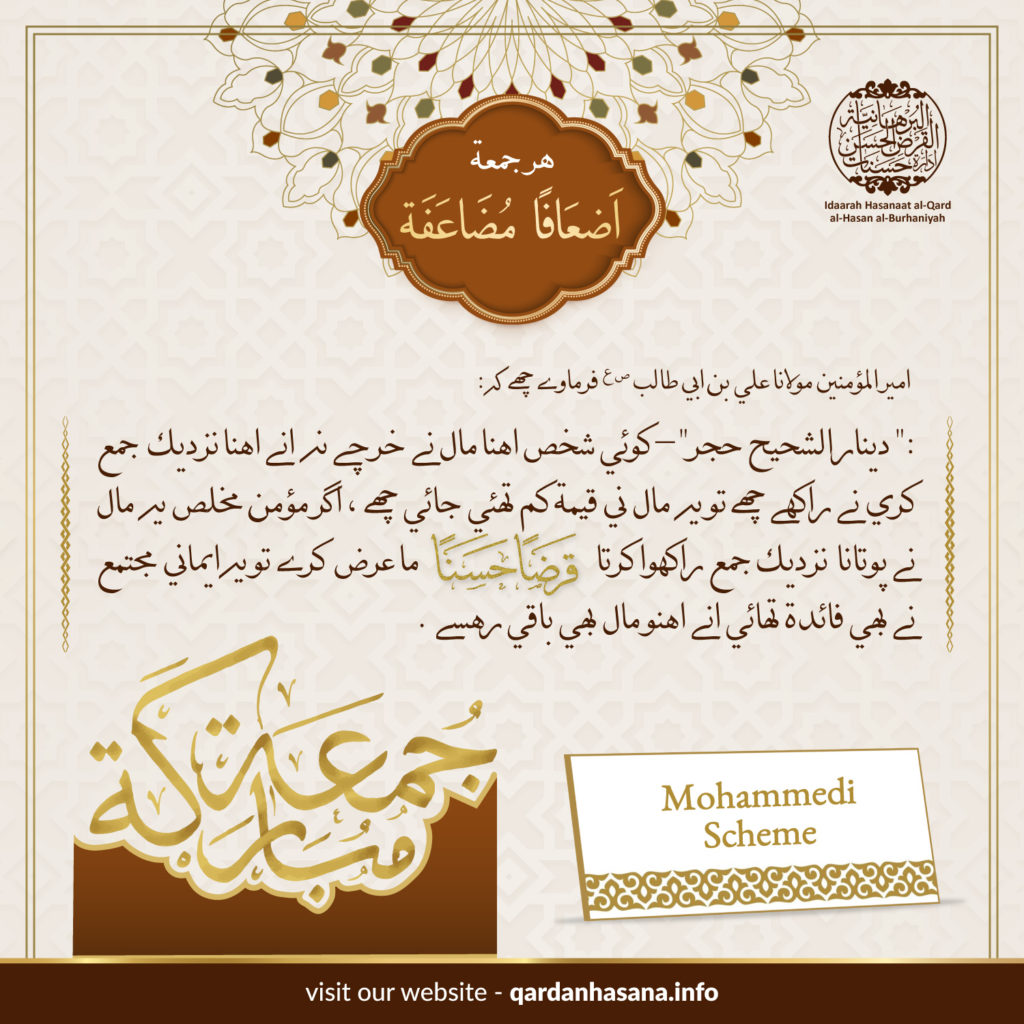 هر جمعة
اَضعَافًا مُضَاعَفَة
البرهانية
القرض الحسن
ادارة حسنات
Idaarah Hasanaat al-Qard
al-Hasan al-Burhaniyah
امير المؤمنين مولانا علي بن ابي طالب ص ع فرماوے چھے كہ:
:" دينار الشحيح حجر" – كوئي شخص اهنا مال نے خرچے نہ انے اهنا نزديك جمع
كري نے راكهے چھے تو يہ مال ني قيمة كم تھئي جائي چھے ، اگر مؤمن مخلص يہ مال
نے پوتانا نزديك جمع راكهوا كرتا قرضًا حَسَنًا ما عرض كرے تو يہ ايماني مجتمع
نے بھي فائدة تھائي انے اهنو مال بھي باقي رهسے .
جُمعَة
مُبَارَكَة
Mohammedi
Scheme
visit our website - qardanhasana.info